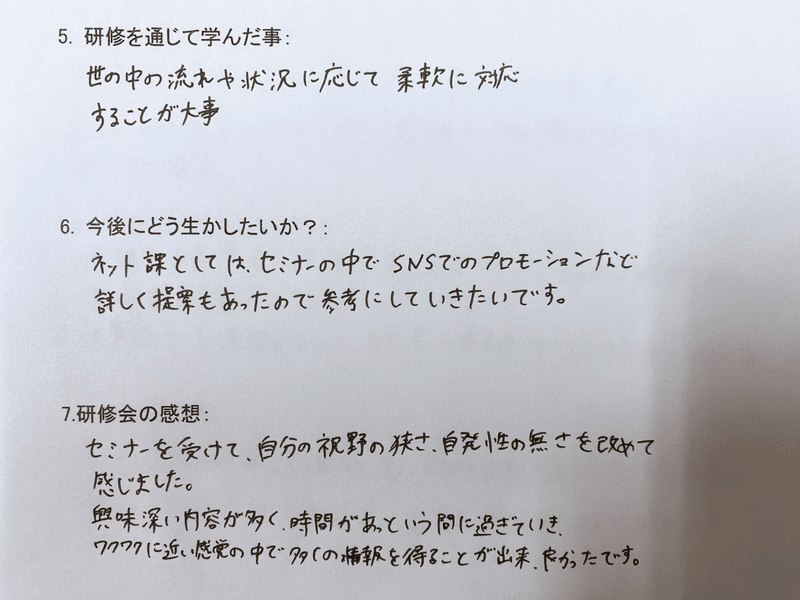 5. 研修を通じて学んだ事：
世の中の流れや状況に応じて 柔軟に対応
することが大事
6. 今後にどう生かしたいか？：
ネット課としては、セミナーの中でSNSでのプロモーションなど
詳しく提案もあったので参考にしていきたいです。
7.研修会の感想：
セミナーを受けて、自分の視野の狭さ、自発性の無さを改めて
感じました。
興味深い内容が多く、時間があっという間に過ぎていき、
ワクワクに近い感覚の中で多くの情報を得ることが出来、良かったです。